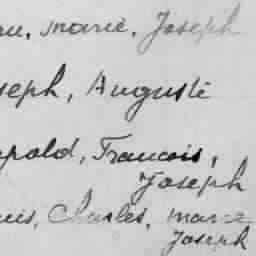 au, marie, Joseph
seph, Auguste
opold, Francois,
Joseph
uis, Charles, marie
Joseph